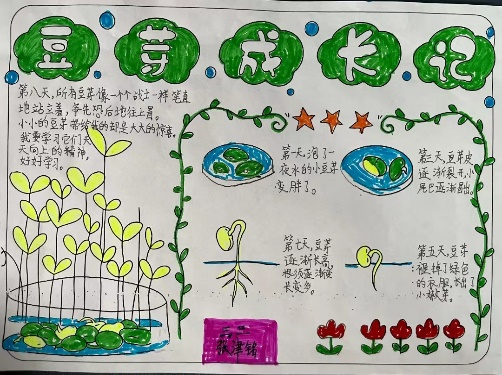 豆芽成长记
第八天,所有豆芽像一个个战士一样笔直
地站立着,争先恐后地往上冒。
小小的豆芽带给我的却是大大的惊喜,
我要学习它们天
天向上的精神,
好好学习。
第一天,泡了一
夜水的小豆芽
变胖了。
第三天,豆芽皮
逐渐裂开,小
尾巴逐渐露出。
第七天,豆芽
逐渐长高,
根须逐渐变
长变多。
第五天,豆芽
褪掉了绿色
的衣服,长出了
小嫩芽。